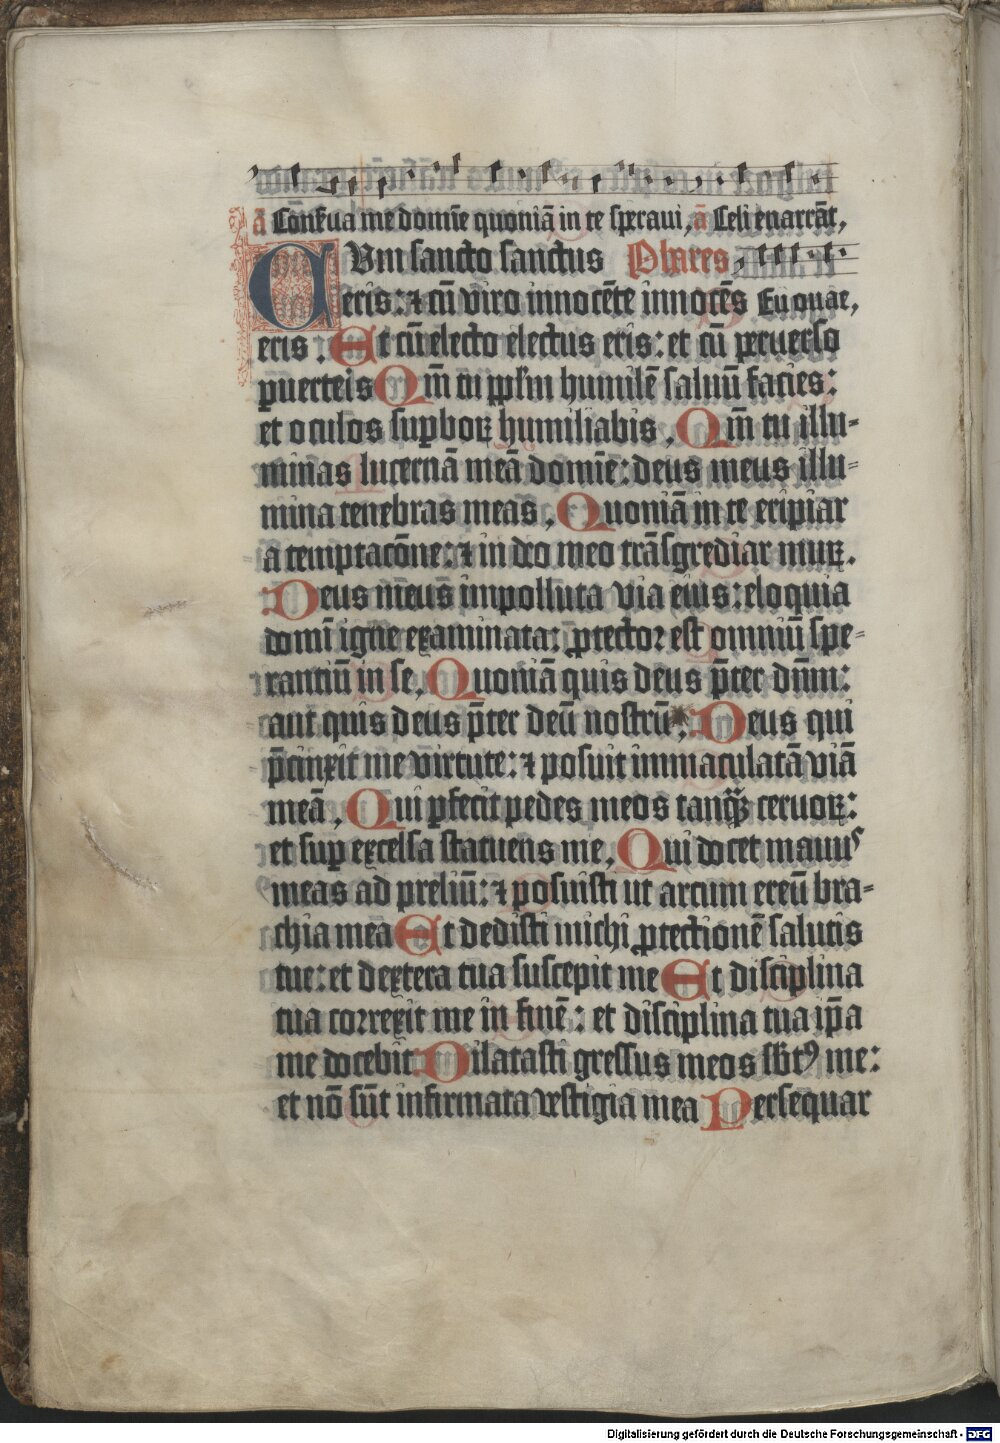 ā Cōns̄ua me domīe quoniā in te speraui, ā Celi enarrāt,
CUm sancto sanctus Plures
eris: ⁊ cū viro innocēte innocēs Euouae,
eris. Et cū electo electus eris: et cū ꝑuerso
ꝑuerteis Qm̄ tu pplm̄ humilē saluū facies:
et oculos suꝑboꝝ humiliabis, Qm̄ tu illu-
minas lucernā meā domīe: deus meus illu-
mina tenebras meas, Quoniā in te eripiar
a temptacōne: ⁊ in deo meo trāsgrediar muꝝ.
Deus meus impolluta via eius: eloquia
domī igne examinata: ꝓtector est omniū spe-
rantiū in se, Quoniā quis deus p̄ter dn̄m:
aut quis deus p̄ter deū nostrū, Deus qui
p̄cinxit me virtute: ⁊ posuit immaculatā viā
meā, Qui ꝑfecit pedes meos tanqꝫ ceruoꝝ:
et suꝑ excelsa statuens me, Qui docet manus
meas ad preliū: ⁊ posuisti ut arcum ereū bra-
chia mea Et dedisti michi ꝓtectionē salutis
tue: et dextera tua suscepit me Et disciplina
tua correxit me in finē: et disciplina tua ip̄a
me docebit Dilatasti gressus meos sbt᾽ me:
et nō sūt infirmata vestigia mea Persequar
Digitalisierung gefördert durch die Deutsche Forschungsgemeinschaft - DFG